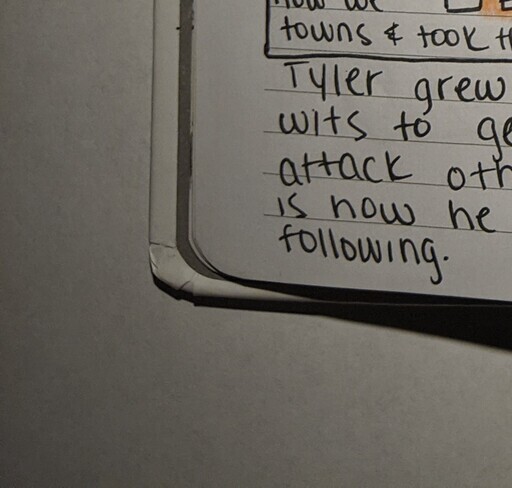 now we
towns & took th
Tyler grew
wits to ge
attack oth
is now he
following.